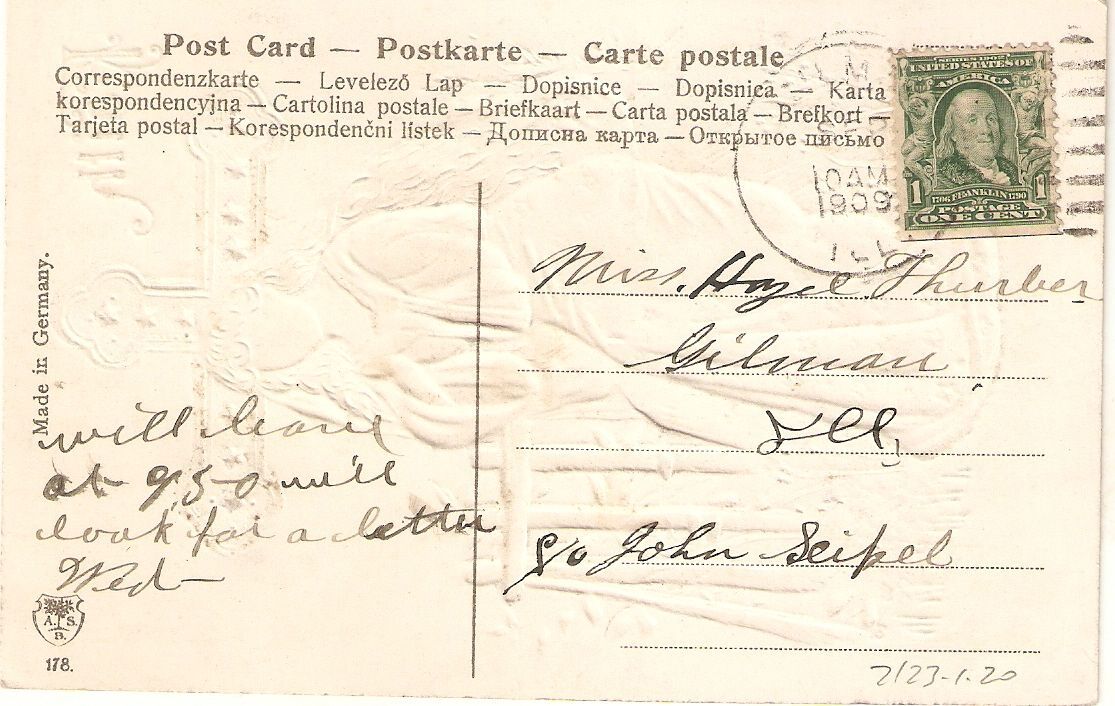 Post Card — Postkarte — Carte postale
Correspondenzkarte — Levelező Lap — Dopisnice — Dopisnica — Karta
korespondencyjna — Cartolina postale — Briefkaart — Carta postala — Brefkort —
Tarjeta postal — Korespondenčni listek — Дописна карта — Открытое письмо
10 AM
1909
ILL
SERIES 1902
UNITED STATES OF
AMERICA
1 1
1706 FRANKLIN 1790
POSTAGE
ONE CENT
Made in Germany.
Miss. Hazel Thurber
Gilman
Ill,
c/o John Seipel
will leave
at 950 will
look for a letter
Wed—
A. S.
B.
178.